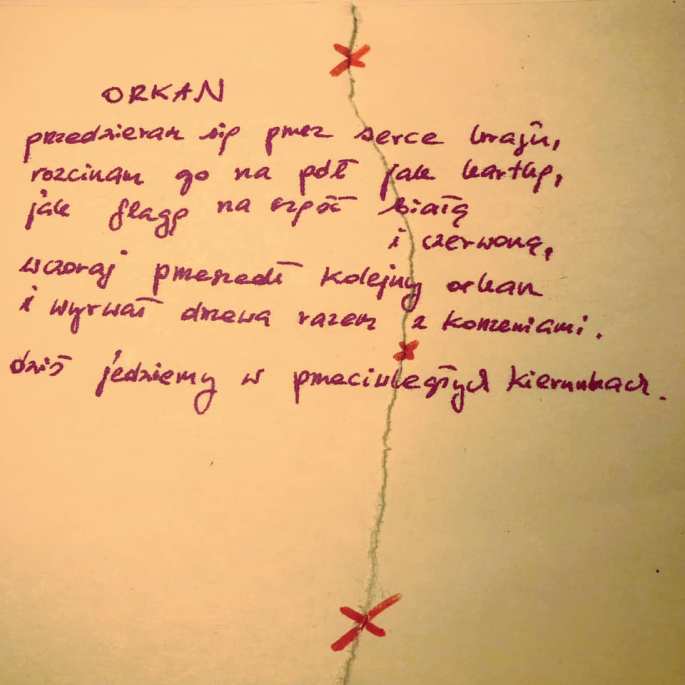 ORKAN
przedzieram się przez serce kraju,
rozcinam go na pół jak kartkę,
jak flagę na część białą
i czerwoną,
wczoraj przeszedł kolejny orkan
i wyrwał drzewa razem z korzeniami.
dziś jedziemy w przeciwległych kierunkach.